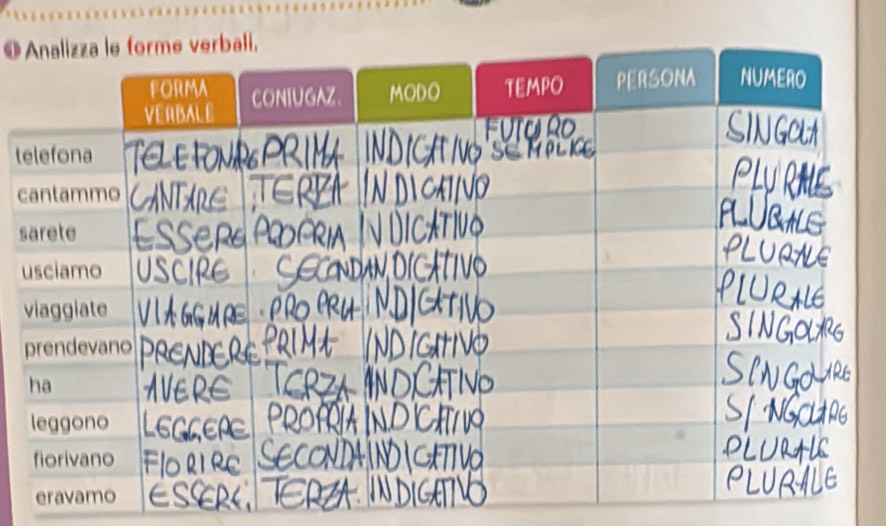 1 Analizza le forme verbali.
FORMA VERBALE CONIUGAZ. MODO TEMPO PERSONA NUMERO
telefona TELEFONARE PRIMA INDICATIVO FUTURO SEMPLICE SINGOLA
cantammo CANTARE TERZA INDICATIVO PLURALE
sarete ESSERE PROPRIA INDICATIVO PLURALE
usciamo USCIRE SECONDA INDICATIVO PLURALE
viaggiate VIAGGIARE PROPRIA INDICATIVO PLURALE
prendevano PRENDERE PRIMA INDICATIVO SINGOLARE
ha AVERE TERZA INDICATIVO SINGOLARE
leggono LEGGERE PROPRIA INDICATIVO SINGOLARE
fiorivano FIORIRE SECONDA INDICATIVO PLURALE
eravamo ESSERE, TERZA INDICATIVO PLURALE